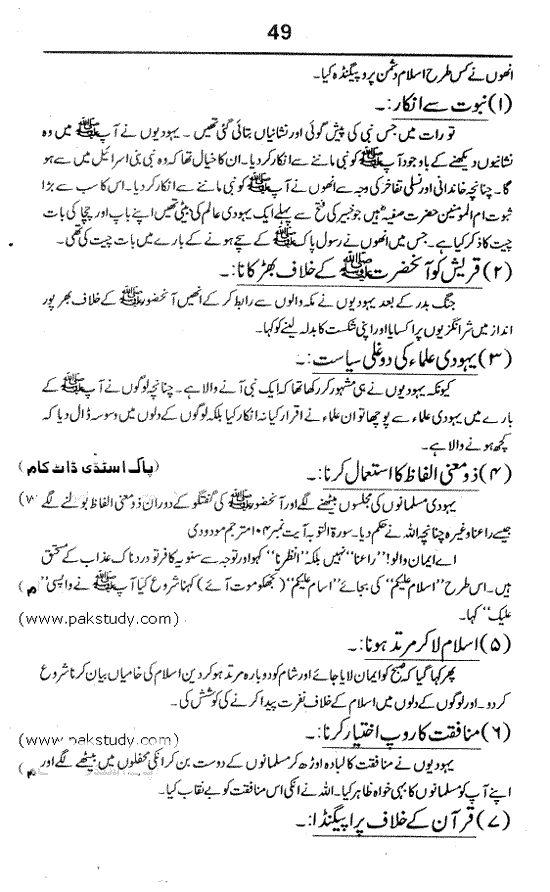 49
انھوں نے کس طرح اسلام دشمن پروپیگنڈہ کیا۔
(۱) نبوت سے انکار:۔
تو رات میں جس نبی کی پیش گوئی اور نشانیاں بتائی گئی تھیں۔ یہودیوں نے آپ ﷺ میں وہ
نشانیوں دیکھنے کے باوجود آپ ﷺ کو نبی ماننے سے انکار کر دیا۔ ان کا خیال تھا کہ وہ نبی بنی اسرائیل میں سے ہو
گا۔ چنانچہ خاندانی اور نسلی تفاخر کی وجہ سے انھوں نے آپ ﷺ کو نبی ماننے سے انکار کر دیا۔ اس کا سب سے بڑا
ثبوت ام المومنین حضرت صفیہؓ ہیں جو خیبر کی فتح سے پہلے ایک یہودی عالم کی بیٹی تھیں اپنے باپ اور چچا کی بات
چیت کا ذکر کیا ہے۔ جس میں انھوں نے رسول پاک ﷺ کے سچے ہونے کے بارے میں بات چیت کی تھی۔
(۲) قریش کو آنحضرت ﷺ کے خلاف بھڑکانا:۔
جنگ بدر کے بعد یہودیوں نے مکہ والوں سے رابطہ کر کے انھیں آنحضور ﷺ کے خلاف بھر پور
انداز میں شرانگزیوں پر اکسایا اور اپنی شکست کا بدلہ لینے کو کہا۔
(۳) یہودی علماء کی دوغلی سیاست:۔
کیونکہ یہودیوں نے ہی مشہور کر رکھا تھا کہ ایک نبی آنے والا ہے۔ چنانچہ لوگوں نے آپ ﷺ کے
بارے میں یہودی علماء سے پوچھا تو ان علماء نے اقرار کیا نہ انکار کیا بلکہ لوگوں کے دلوں میں وسوسہ ڈال دیا کہ
کچھ ہونے والا ہے۔
(۴) ذومعنی الفاظ کا استعمال کرنا:۔ (پاک اسٹڈی ڈاٹ کام)
یہودی مسلمانوں کی مجلسوں بیٹھنے لگے اور آنحضور ﷺ کی گفتگو کے دوران ذومعنی الفاظ بولنے لگے
جیسے راعنا وغیرہ چنانچہ اللہ نے حکم دیا۔ سورۃ التوبہ آیت نمبر ۱۰۴ مترجم مودودی
اے ایمان والو! "راعنا" نہیں بلکہ "انظرنا" کہو اور توجہ سے سنو یہ کافر تو دردناک عذاب کے مستحق
ہیں۔ اس طرح "اسلام علیکم" کی بجائے "اسام علیکم" (تجھکو موت آئے) کہنا شروع کیا آپ ﷺ نے واپسی "
علیک" کہا۔ (www.pakstudy.com)
(۵) اسلام لا کر مرتد ہونا:۔
پھر کہا گیا کہ صبح کو ایمان لایا جائے اور شام کو دوبارہ مرتد ہو کر دین اسلام کی خامیاں بیان کرنا شروع
کر دو۔ اور لوگوں کے دلوں میں اسلام کے خلاف نفرت پیدا کرنے کی کوشش کی۔
(۶) منافقت کا روپ اختیار کرنا:۔ (www.pakstudy.com)
یہودیوں نے منافقت کا لبادہ اوڑھ کر مسلمانوں کے دوست بن کر انکی محفلوں میں بیٹھنے لگے اور
اپنے آپ کو مسلمانوں کا بہی خواہ ظاہر کیا۔ اللہ نے انکی اس منافقت کو بے نقاب کیا۔
(۷) قرآن کے خلاف پراپیگنڈا:۔